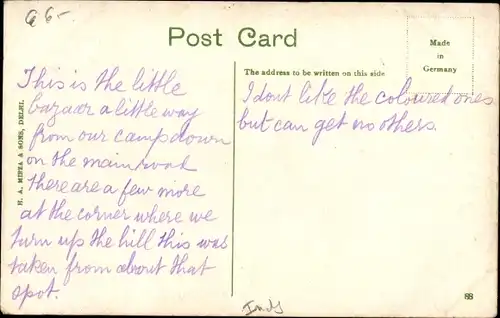 a 6-
Post Card
Made
in
Germany
H. A. MIRZA & SONS, DELHI.
This is the little
bazaar a little way
from our camp down
on the main road
there are a few more
at the corner where we
turn up the hill this was
taken from about that
spot.
The address to be written on this side.
I dont like the coloured ones
but can get no others.
88